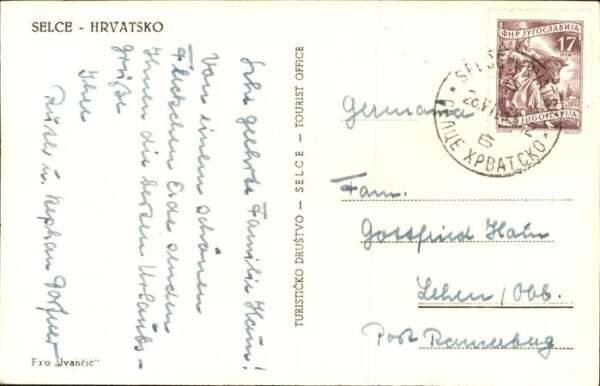 SELCE - HRVATSKO
Sehr geehrte Familie Hahn!
Von einem schönen
Fleckchen Erde senden
Ihnen die besten Urlaubs-
grüße
Ihre
Foto „Ivančić“
TURISTIČKO DRUŠTVO - SELCE - TOURIST OFFICE
ФНР ЈУГОСЛАВИЈА
17
FNR JUGOSLAVIJA
СЕЛЦЕ ХРВАТСКО
Germania
Fam.
Gottfried Hahn
Lehen / Obb.
Post